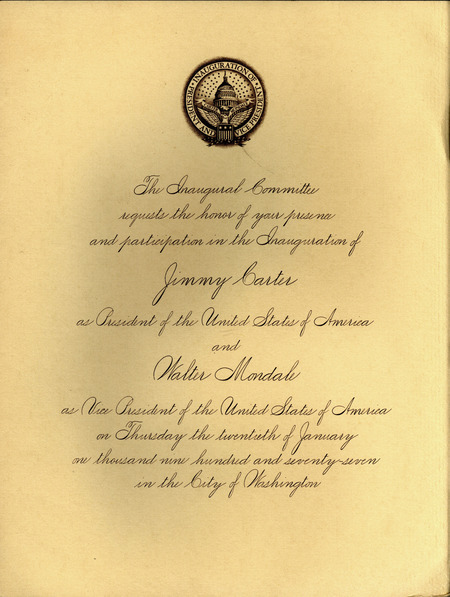 INAUGURATION OF PRESIDENT AND VICE PRESIDENT
The Inaugural Committee
requests the honor of your presence
and participation in the Inauguration of
Jimmy Carter
as President of the United States of America
and
Walter Mondale
as Vice President of the United States of America
on Thursday the twentieth of January
one thousand nine hundred and seventy-seven
in the City of Washington